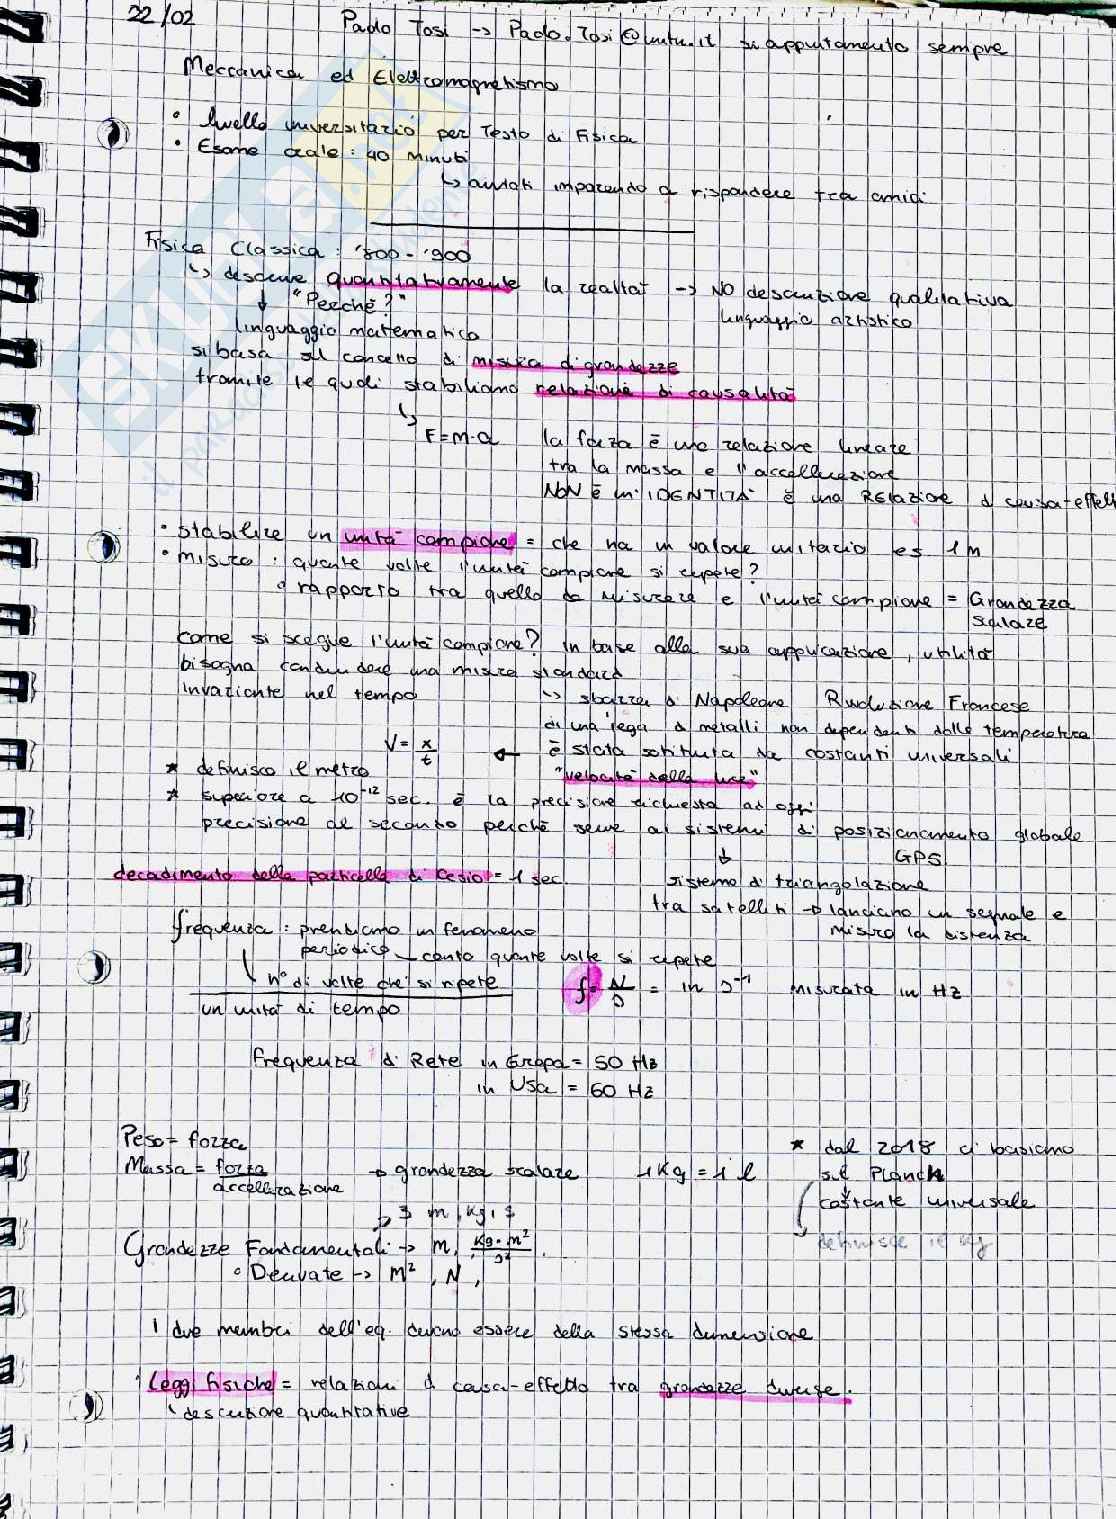 22/02
Paolo Tosi -> Paolo.Tosi@unitn.it su appuntamento sempre
Meccanica ed Elettromagnetismo
• livello universitario per Testo di Fisica
• Esame orale : 40 minuti
↳ aiutati imparando a rispondere tra amici
Fisica Classica : '800 - '900
↳ descrive quantitativamente la realtà -> NO descrizione qualitativa
"Perché?" linguaggio artistico
linguaggio matematico
si basa sul concetto di misura di grandezze
tramite le quali stabiliamo relazione di causalità
↳ F=m·a la forza è una relazione lineare
tra la massa e l'accellerazione
NON è un' IDENTITÀ è una RELAZIONE di causa-effett
• stabilire un unità campione = che ha un valore unitario es 1m
• misura : quante volte l'unità campione si ripete?
rapporto tra quello da misurare e l'unità campione = Grandezza
scalare
Come si sceglie l'unità campione? in base alla sua applicazione, utilità
bisogna condividere una misura standard
invariante nel tempo ↳ sbarra di Napoleone Rivoluzione Francese
di una lega di metalli non dipendenti dalla temperatura
V = x/t <- è stata sotituita da costanti universali
* definisco il metro "velocità della luce"
* superiore a 10⁻¹² sec. è la precisione richiesta ad oggi
precisione del secondo perché serve ai sistemi di posizionamento globale
GPS
decadimento della particella di Cesio = 1 sec.
sistema di triangolazione
tra satelliti -> lanciano un segnale e
misuro la distanza
frequenza : prendiamo un fenomeno
periodico conto quante volte si ripete
n° di volte che si ripete
un unità di tempo
f = N/s = in s⁻¹ misurata in Hz
Frequenza di Rete in Europa = 50 Hz
in Usa = 60 Hz
Peso = forza
Massa = forza/accellerazione -> grandezza scalare 1 Kg = 1 l
* dal 2018 ci basiamo
sul Planck
costante universale
definisce il Kg
m, kg, s
Grandezze Fondamentali -> m, kg·m²/s²
• Derivate -> m², N,
I due membri dell'eq. devono essere della stessa dimensione
Leggi fisiche = relazioni di causa-effetto tra grandezze diverse.
descrizione quantitative